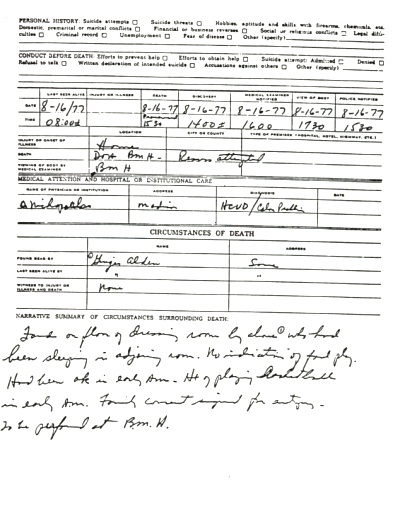 PERSONAL HISTORY: Suicide attempts □ Suicide threats □ Hobbies, aptitude and skills with firearms, chemicals, etc.
Domestic, premarital or marital conflicts □ Financial or business reverses □ Social or religious conflicts □ Legal diffi-
culties □ Criminal record □ Unemployment □ Fear of disease □ Other (specify)
CONDUCT BEFORE DEATH: Efforts to prevent help □ Efforts to obtain help □ Suicide attempt: Admitted □ Denied □
Refusal to talk □ Written declaration of intended suicide □ Accusations against others □ Other (specify)
LAST SEEN ALIVE INJURY OR ILLNESS DEATH DISCOVERY MEDICAL EXAMINER NOTIFIED VIEW OF BODY POLICE NOTIFIED
DATE 8-16/77 8-16-77 8-16-77 8-16-77 8-16-77 8-16-77
TIME 0800± Pronounced 1530 1400± 1600 1730 1530
LOCATION CITY OR COUNTY TYPE OF PREMISES (HOSPITAL, HOTEL, HIGHWAY, ETC.)
INJURY OR ONSET OF ILLNESS Home
DEATH DOA BMH - Resus attempted
VIEWING OF BODY BY MEDICAL EXAMINER BMH
MEDICAL ATTENTION AND HOSPITAL OR INSTITUTIONAL CARE
NAME OF PHYSICIAN OR INSTITUTION ADDRESS DIAGNOSIS DATE
HCVD / Colon
CIRCUMSTANCES OF DEATH
NAME ADDRESS
FOUND DEAD BY Ginger Alden Same
LAST SEEN ALIVE BY " "
WITNESS TO INJURY OR ILLNESS AND DEATH None
NARRATIVE SUMMARY OF CIRCUMSTANCES SURROUNDING DEATH:
Found on floor of dressing room by above who had
been sleeping in adjoining room. No indication of foul play.
Had been ok in early Am - Hx of playing basketball
in early Am. Family consent signed for autopsy -
to be performed at BMH.